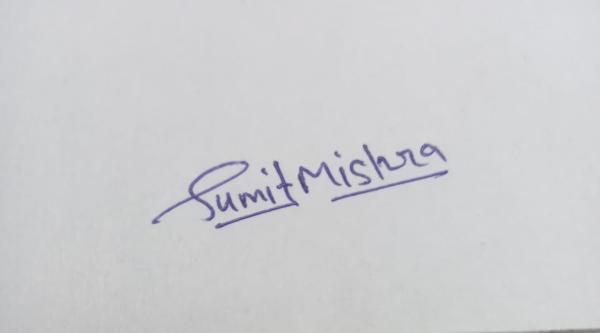 Sumit Mishra